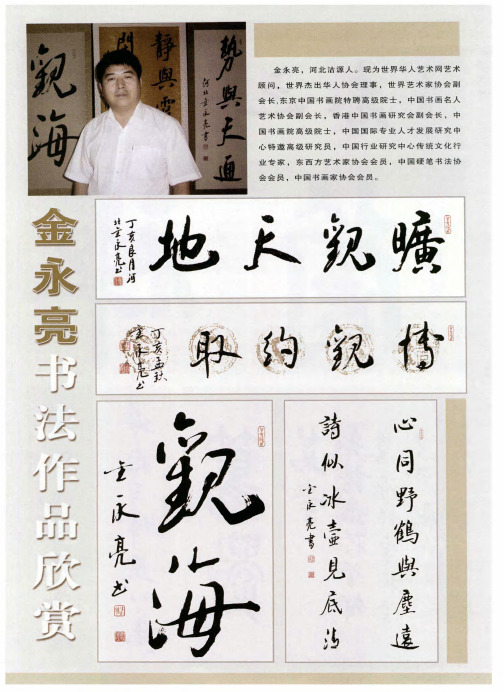 金永亮，河北沽源人。现为世界华人艺术网艺术
顾问，世界杰出华人协会理事，世界艺术家协会副
会长，东京中国书画院特聘高级院士，中国书画名人
艺术协会副会长，香港中国书画研究会副会长、中
国书画院高级院士，中国国际专业人才发展研究中
心特邀高级研究员，中国行业研究中心传统文化行
业专家，东西方艺术家协会会员，中国硬笔书法协
会会员，中国书画家协会会员。
觀海
靜與
勢與天通
河北金永亮書
金永亮书法作品欣赏
曠觀天地
丁亥良月河
北金永亮书
博觀約取
丁亥孟秋
金永亮书
觀海
金永亮书
心同野鶴與塵遠
詩似冰壺見底清
金永亮書